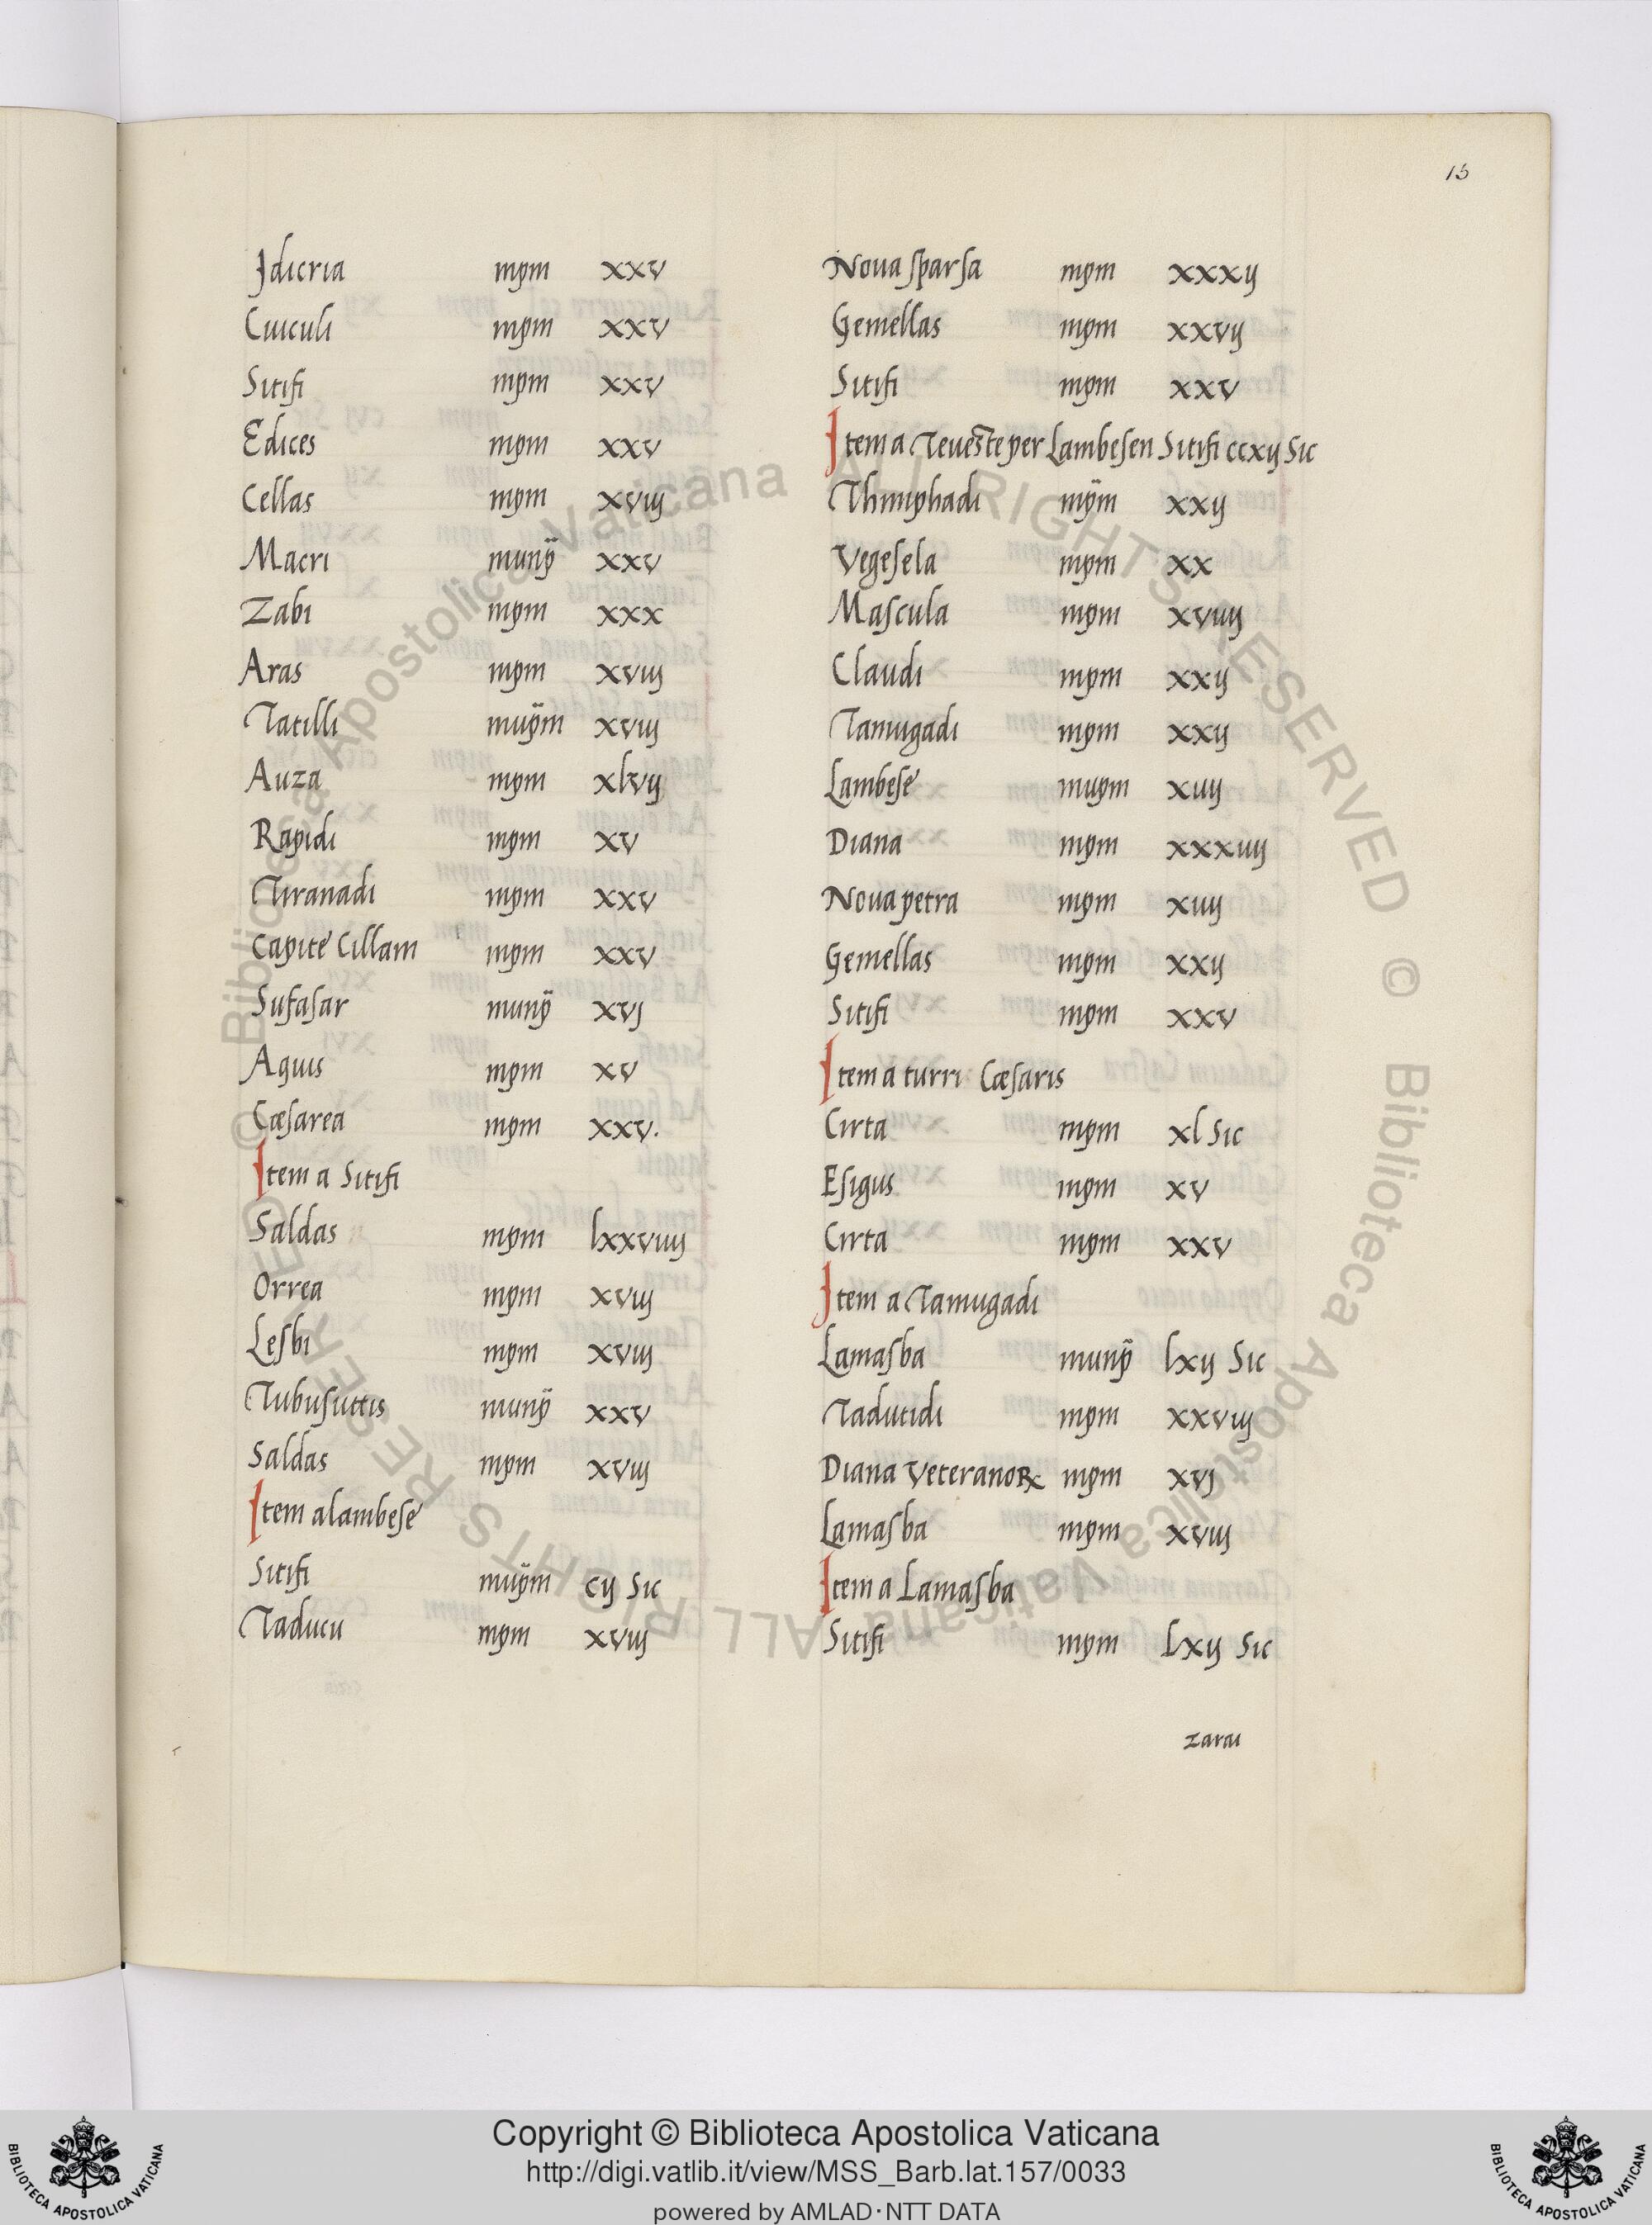 15
Idicria mpm xxv
Cuiculi mpm xxv
Sitifi mpm xxv
Edices mpm xxv
Cellas mpm xviij
Macri munp̃ xxv
Zabi mpm xxx
Aras mpm xviij
Tatilli mup̃m xviij
Auza mpm xlvij
Rapidi mpm xv
Tiranadi mpm xxv
Capite Cillam mpm xxv
Sufasar munp̃ xvj
Aguis mpm xv
Cæsarea mpm xxv.
Item a Sitifi
Saldas mpm lxxviiij
Orrea mpm xviij
Lesbi mpm xviij
Tubusuttis munp̃ xxv
Saldas mpm xviij
Item a lambese
Sitifi mup̃m cij Sic
Taducu mpm xviij
Noua sparsa mpm xxxij
Gemellas mpm xxvij
Sitifi mpm xxv
Item a Teueste per Lambesen Sitifi ccxij Sic
Thmphadi mp̃m xxij
Vegesela mpm xx
Mascula mpm xviiij
Claudi mpm xxij
Tamugadi mpm xxij
Lambese mupm xiiij
Diana mpm xxxiiij
Noua petra mpm xiiij
Gemellas mpm xxij
Sitifi mpm xxv
Item a turri Cæsaris
Cirta mpm xl Sic
Esigus mpm xv
Cirta mpm xxv
Item a Tamugadi
Lamasba munp̃ lxij Sic
Tadutidi mpm xxviij
Diana Veteranoꝝ mpm xvj
Lamasba mpm xviij
Item a Lamasba
Sitifi mpm Lxij Sic
zarai
© Biblioteca Apostolica Vaticana ALL RIGHTS RESERVED © Biblioteca Apostolica Vaticana ALL RIGHTS RESERVED
Copyright © Biblioteca Apostolica Vaticana
http://digi.vatlib.it/view/MSS_Barb.lat.157/0033
powered by AMLAD·NTT DATA
BIBLIOTECA APOSTOLICA VATICANA
BIBLIOTECA APOSTOLICA VATICANA